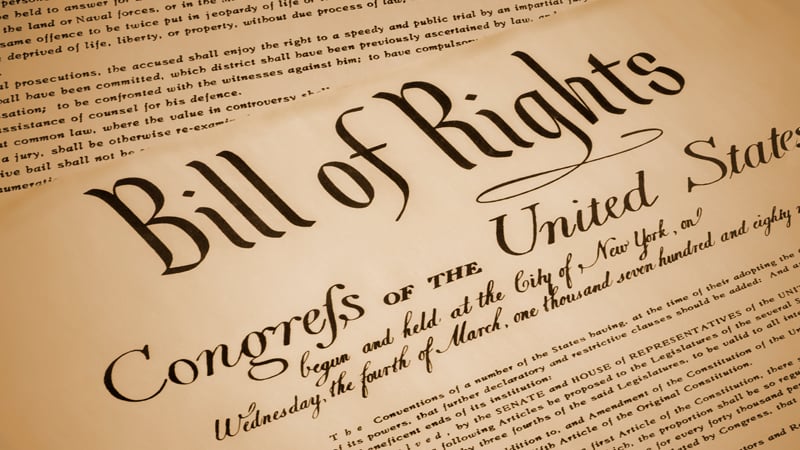 be held to answer for
the land or Naval forces, or in the
same offence to be twice put in jeopardy of life or
deprived of life, liberty, or property, without due process of law,
prosecutions, the accused shall enjoy the right to a speedy and public trial by an impartial
have been committed, which district shall have been previously ascertained by law,
to be confronted with the witnesses against him; to have
assistance of counsel for his defence.
common law, where the value in controversy
a jury, shall be otherwise
bail shall not be
Bill of Rights
Congreſs OF THE United States
begun and held at the City of New York, on
Wednesday, the fourth of March, one thousand seven hundred and eighty
The Conventions of a number of the States having, at the time of their adopting the
of its powers, that further declaratory and restrictive clauses should be added: And
beneficent ends of its institution.
by the SENATE and HOUSE of REPRESENTATIVES of the
following Articles be proposed to the Legislatures of the several
three fourths of the said Legislatures, to be valid to all
to, and Amendment of the Constitution of the
Article of the Original Constitution.
first Article of the Constitution, there
the proportion shall be so
for every forty thousand
by Congress, that